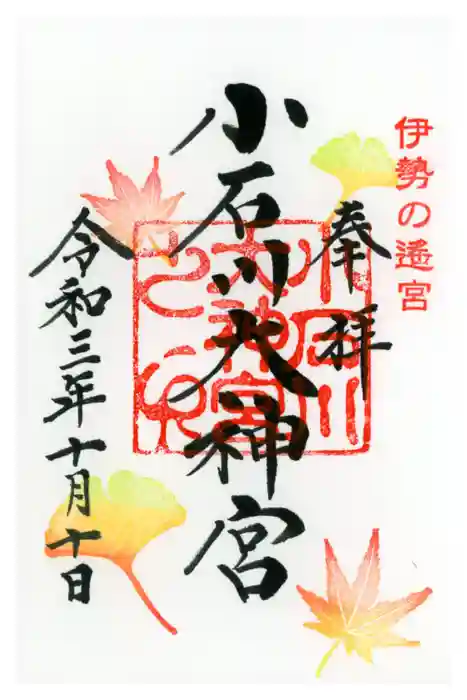 伊勢の遥宮
奉拝
小石川大神宮
令和三年十月十日
小石川
大神宮
之印